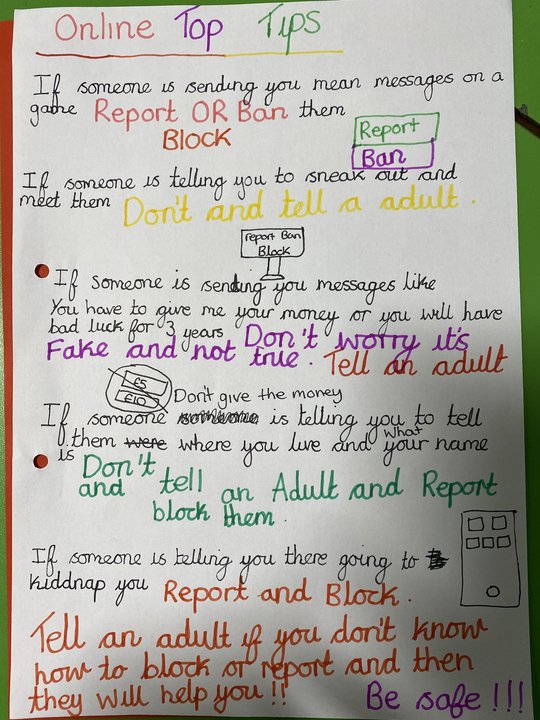 Online Top Tips
If someone is sending you mean messages on a
game Report OR Ban them
Block
Report
Ban
If someone is telling you to sneak out and
meet them Don't and tell a adult.
report Ban
Block
If someone is sending you messages like
You have to give me your money or you will have
bad luck for 3 years Don't worry it's
Fake and not true. Tell an adult
£5
£10
Don't give the money
If someone is telling you to tell
them were where you live and what your name
is Don't
and tell an Adult and Report
block them.
If someone is telling you there going to
kiddnap you Report and Block.
Tell an adult if you don't know
how to block or report and then
they will help you !!
Be safe !!!